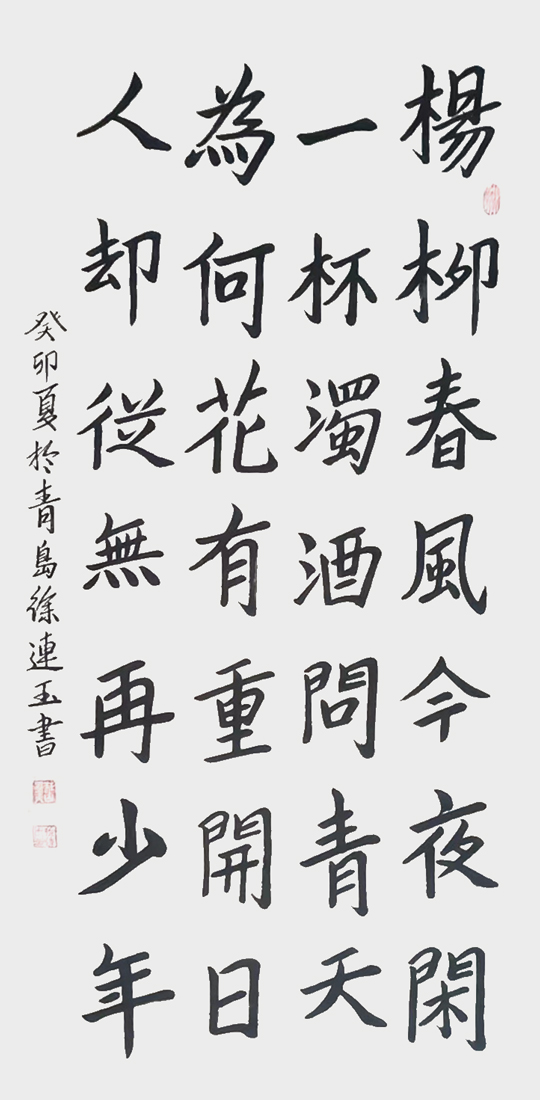 楊柳春風今夜閑
一杯濁酒問青天
為何花有重開日
人却從無再少年
癸卯夏於青島徐連玉書